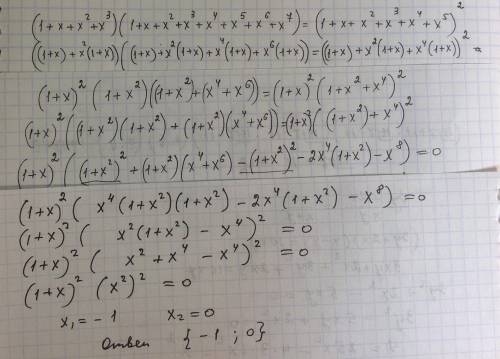 (1+x+x²+x³)(1+x+x²+x³+x⁴+x⁵+x⁶+x⁷)=(1+x+x²+x³+x⁴+x⁵)²
((1+x)+x²(1+x))((1+x)+x²(1+x)+x⁴(1+x)+x⁶(1+x))=((1+x)+x²(1+x)+x⁴(1+x))²=
(1+x)²(1+x²)((1+x²)+(x⁴+x⁶))=(1+x)²(1+x²+x⁴)²
(1+x)²((1+x²)(1+x²)+(1+x²)(x⁴+x⁶))=(1+x)²((1+x²)+x⁴)²
(1+x)²((1+x²)²+(1+x²)(x⁴+x⁶)-(1+x²)²-2x⁴(1+x²)-x⁸)=0
(1+x)²(x⁴(1+x²)(1+x²)-2x⁴(1+x²)-x⁸)=0
(1+x)²(x²(1+x²)-x⁴)²=0
(1+x)²(x²+x⁴-x⁴)²=0
(1+x)²(x²)²=0
x₁=-1 x₂=0
Ответ {-1; 0}